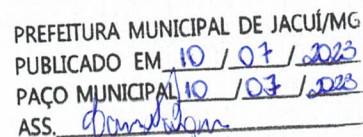 PREFEITURA MUNICIPAL DE JACUÍ/MG
PUBLICADO EM 10 / 07 / 2023
PAÇO MUNICIPAL 10 / 07 / 2023
ASS.